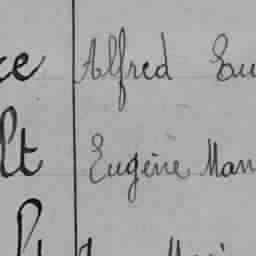 ce Alfred Eu
lt Eugène Man